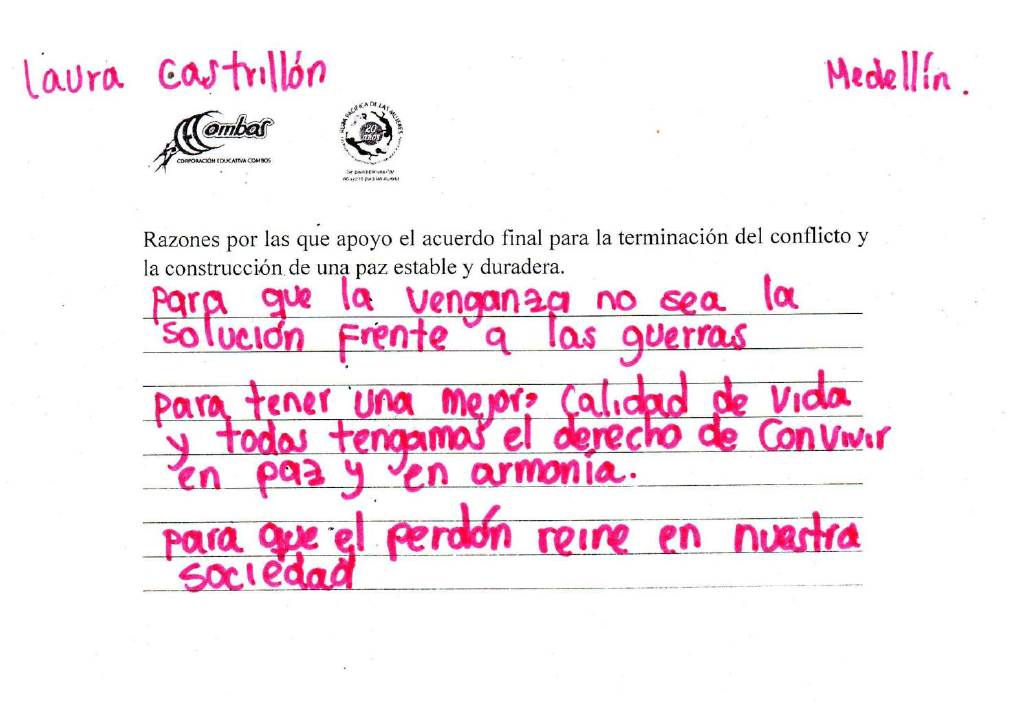 Laura Castrillón
Medellín.
Combos
CORPORACIÓN EDUCATIVA COMBOS
RUTA PACÍFICA DE LAS MUJERES
20 años
Razones por las que apoyo el acuerdo final para la terminación del conflicto y
la construcción de una paz estable y duradera.
Para que la venganza no sea la
solución frente a las guerras
para tener una mejor calidad de vida
y todas tengamos el derecho de convivir
en paz y en armonía.
para que el perdón reine en nuestra
sociedad